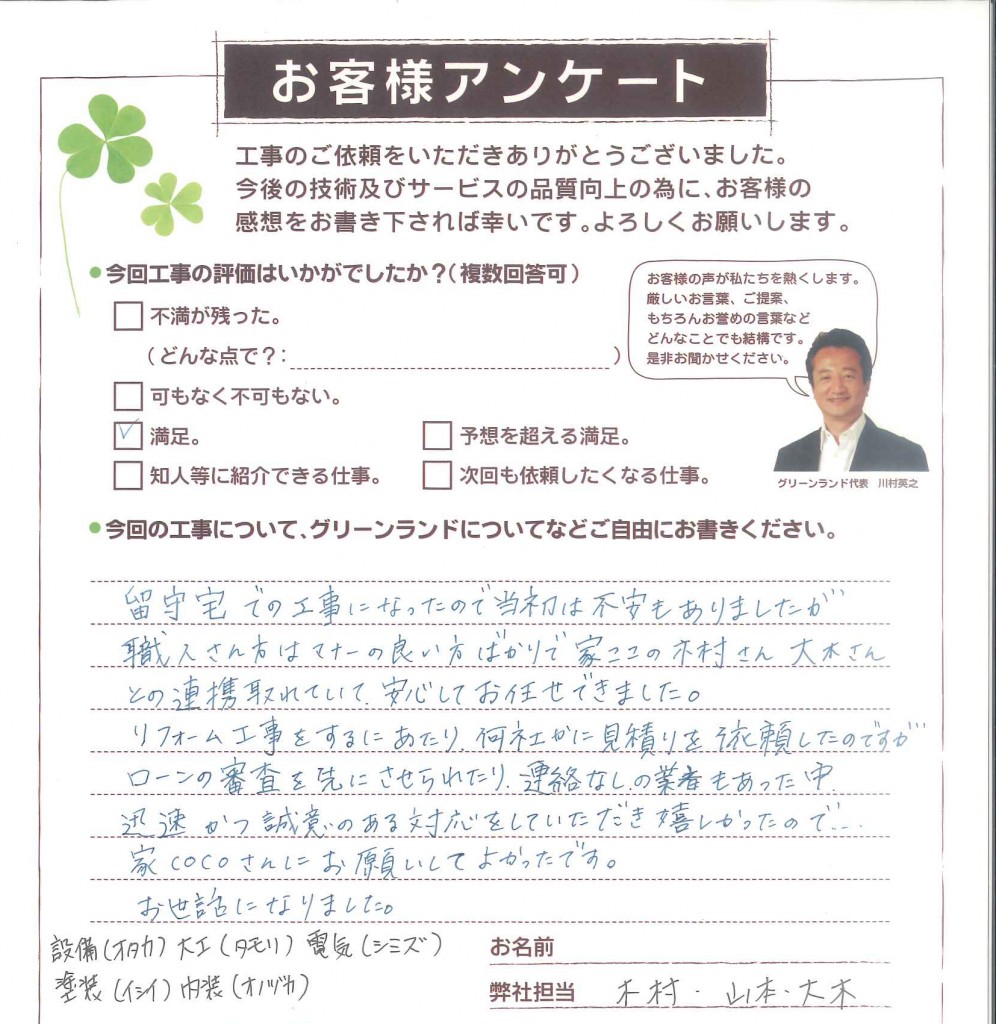 お客様アンケート
工事のご依頼をいただきありがとうございました。
今後の技術及びサービスの品質向上の為に、お客様の
感想をお書き下されば幸いです。よろしくお願いします。
●今回工事の評価はいかがでしたか?(複数回答可)
不満が残った。
(どんな点で?: )
可もなく不可もない。
満足。
予想を超える満足。
知人等に紹介できる仕事。
次回も依頼したくなる仕事。
お客様の声が私たちを熱くします。
厳しいお言葉、ご提案、
もちろんお誉めの言葉など
どんなことでも結構です。
是非お聞かせください。
グリーンランド代表 川村英之
●今回の工事について、グリーンランドについてなどご自由にお書きください。
留守宅での工事になったので当初は不安もありましたが
職人さん方はマナーの良い方ばかりで家ココの木村さん 大木さん
との連携取れていて、安心してお任せできました。
リフォーム工事をするにあたり、何社かに見積りを依頼したのですが
ローンの審査を先にさせられたり、連絡なしの業者もあった中、
迅速かつ誠意のある対応をしていただき嬉しかったので…
家COCOさんにお願いしてよかったです。
お世話になりました。
設備(オタカ) 大工(タモリ) 電気(シミズ)
塗装(イシイ) 内装(オノヅカ)
お名前
弊社担当 木村・山本・大木